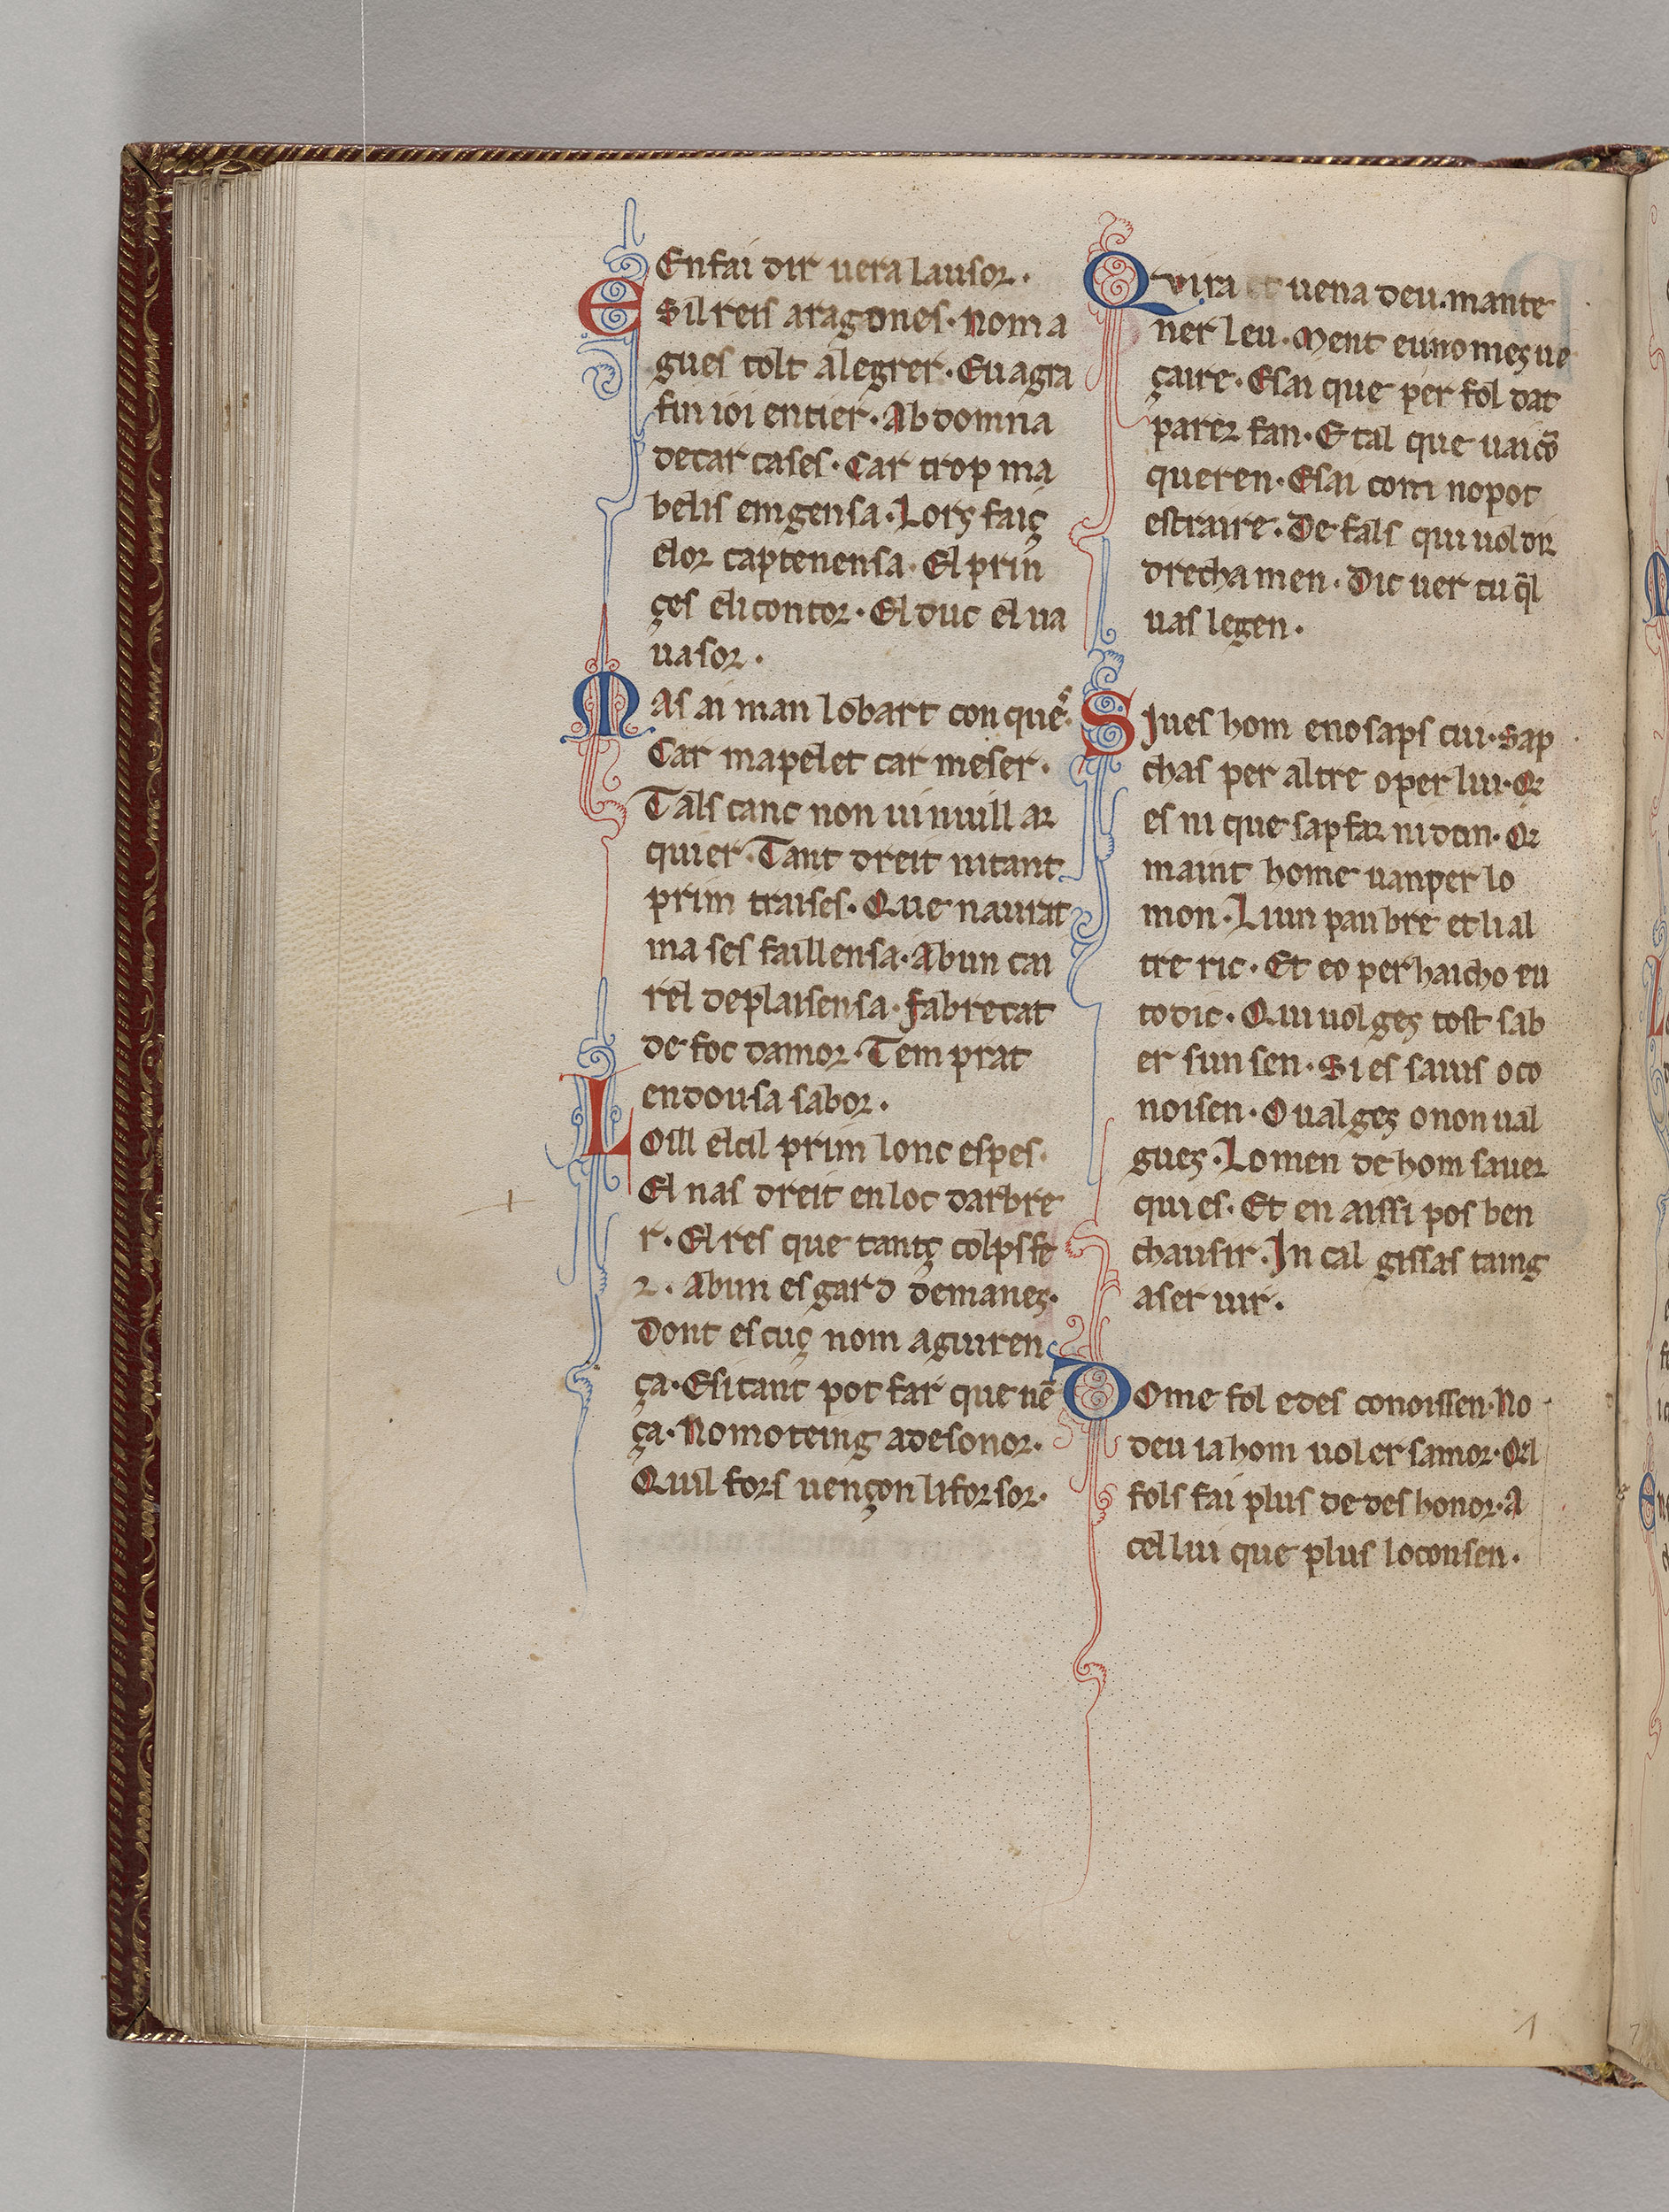 Enfai dir uera lausor.
E Sil reis aragones. nom a
gues tolt alegrer. Eu agra
fin ioi entier. Ab domna
de tar cases. Car trop ma
belis em gensa. Lorç faiç
elor captenensa. El prin
çes eli contor. El duc el ua
uasor.
M As ai man lobart con ques.
Car mapelet car meser.
Tals canc non ui nuill ar
quier. Tant dreit ni tant
prim traises. Que naurat
ma ses faillensa. Ab un cai
rel de plaisensa. fabrecat
de foc damor. Tem prat
en dousa sabor.
L Oill el cil prim lonc espes.
El nas dreit en loc darbre
r. El res que tantç colps fe
r. Ab un es gard demanes.
Dont escuç nom a guiren
ça. E si tant pot far que uē
ça. No mo teing a desonor.
Qu il fors uençon li forsor.
Q vira uena deu. mante
ner leu. Ment eu no mes ue
çaire. E sai que per fol dat
parer fan. E tal que uai cō
queren. E sai com no pot
estraire. De fals qui uol dir
drecha men. Dic uer tu q̄l
uas legen.
S Jues hom eno saps cui. Sap
chas per altre o per lui. Qr
es ni que sap far ni don. Qr
maint home uan per lo
mon. Lu un pau bre et li al
tre ric. Et eo per haicho eu
to dic. Qui uol ges tost sab
er sun sen. Si es sauis o co
noisen. O ual ges o non ual
gues. Lo men de hom sauer
qui es. Et en aissi pos ben
chausir. In cal gissas taing
a ser uir.
D Ome fol e des conoissen. No
deu ia hom uoler samor. Qel
fols fai plus de des honor. A
cel lui que plus lo consen.
1